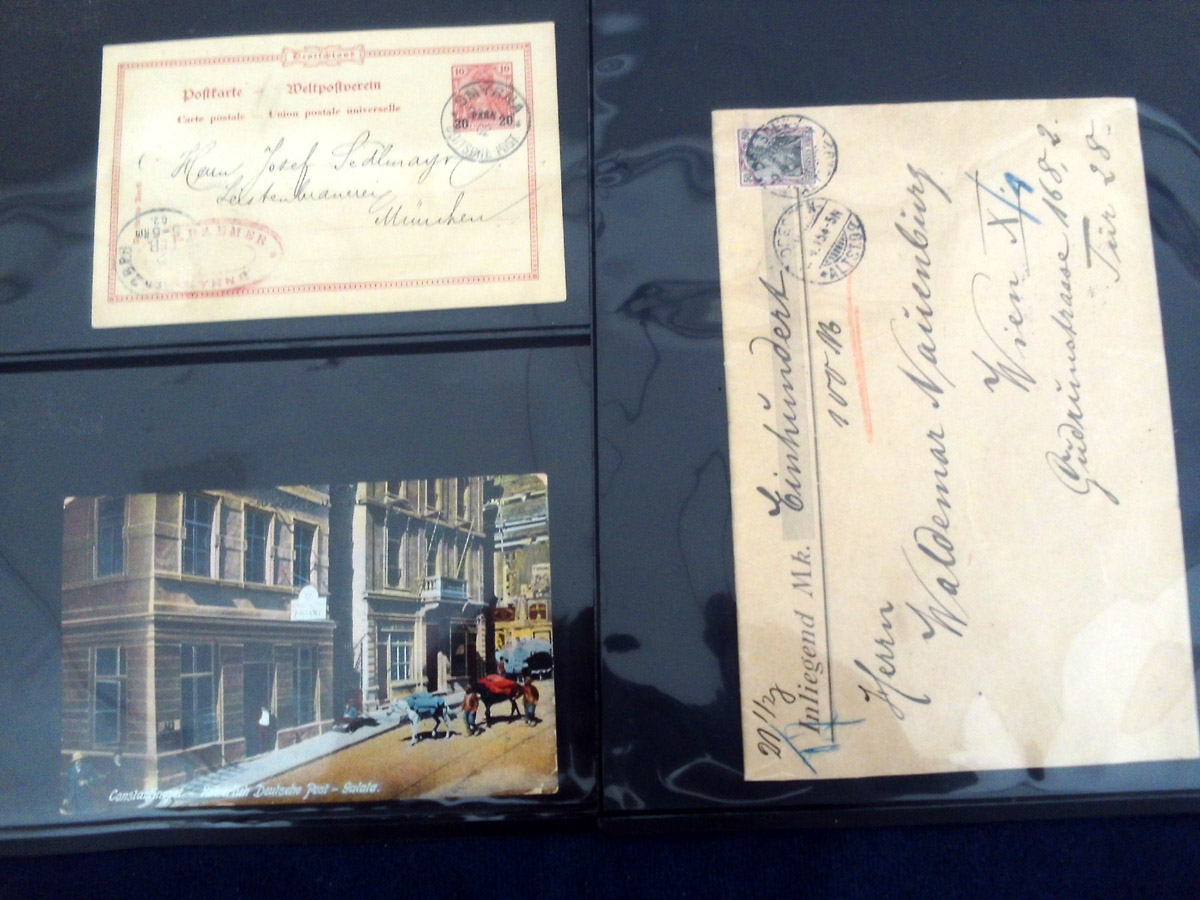 Deutschland
Postkarte — Weltpostverein
Carte postale — Union postale universelle
10 10
20 PARA 20
SMYRNA
DEUTSCHE POST
Herrn Josef Sedlmayr
München
Constantinopel - Deutsche Post - Galata.
Anliegend Mk. Einhundert
100 M
Herrn
Waldemar Nauenburg
Wien X/1
Gudrunstrasse 168 2.
Tür 28.